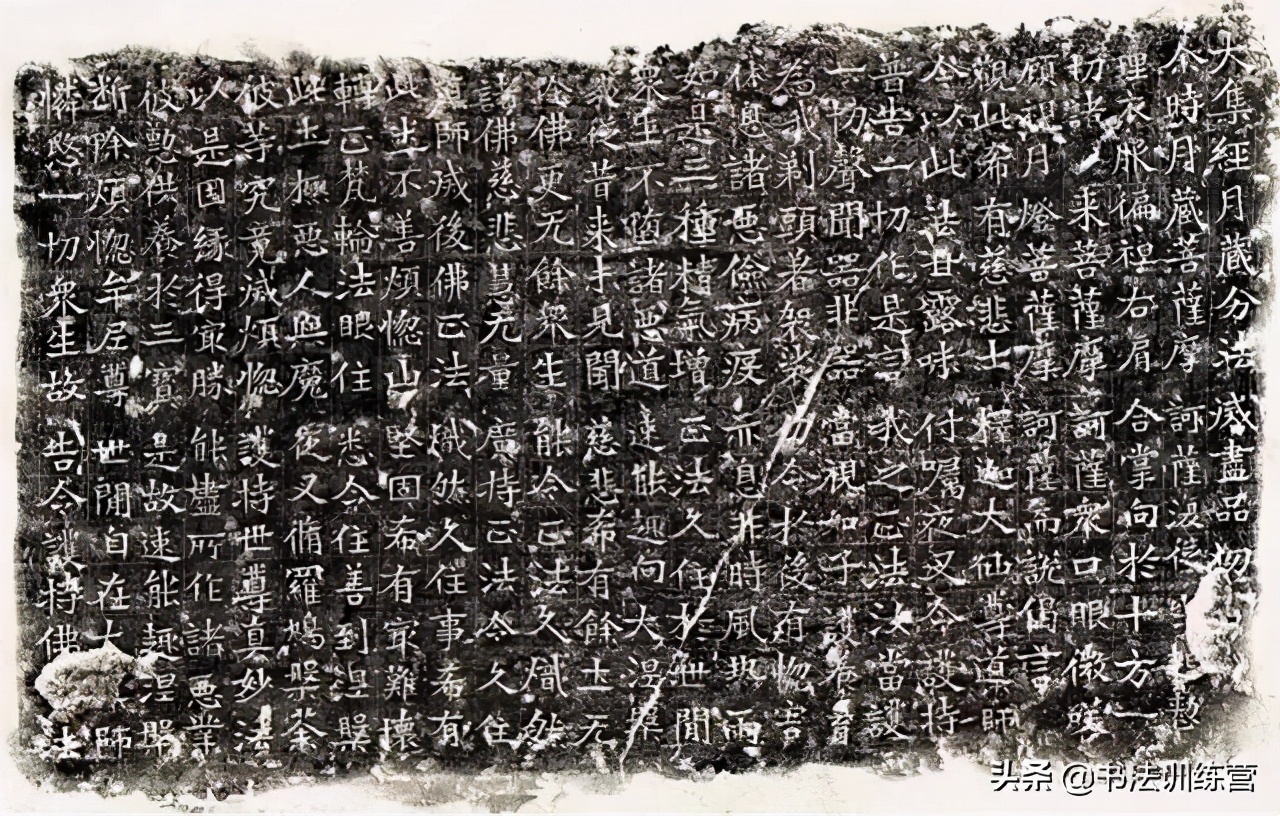 大集經月藏分法滅盡品 初
尒時月藏菩薩摩訶薩從
理衣服偏袒右肩合掌向於十方一
切諸来菩薩摩訶薩衆口眼微咲
顧視月燈菩薩摩訶薩而說偈言
觀此希有慈悲士 釋迦大仙尊導師
令以此法甘露味 付囑夜叉令護持
普告一切作是言 我之正法汝當護
一切聲聞器非器 當視如子護養育
為我剃頭著袈裟 勿令於後有惱害
休息諸惡儉病疫 亦息非時風熱雨
如是三種精氣增 正法久住於世間
衆生不堕諸惡道 速能趣向大涅槃
我從昔来未見聞 慈悲希有餘士无
除佛更无餘衆生 能令正法久熾然
諸佛慈悲慧无量 廣持正法令久住
導師滅後佛正法 熾然久住事希有
此土不善煩惱山 堅固希有㝡難壞
轉正梵輪法眼住 悉令住善到涅槃
此土極惡人與魔 夜叉脩羅鳩槃荼
彼等究竟滅煩惱 護持世尊真妙法
以是因緣得㝡勝 能盡所作諸惡業
彼懃供養於三寳 是故速能趣涅槃
断除煩惱牟尼尊 世間自在大師
憐愍一切衆生故 告令護持佛法
头条 @书法训练营